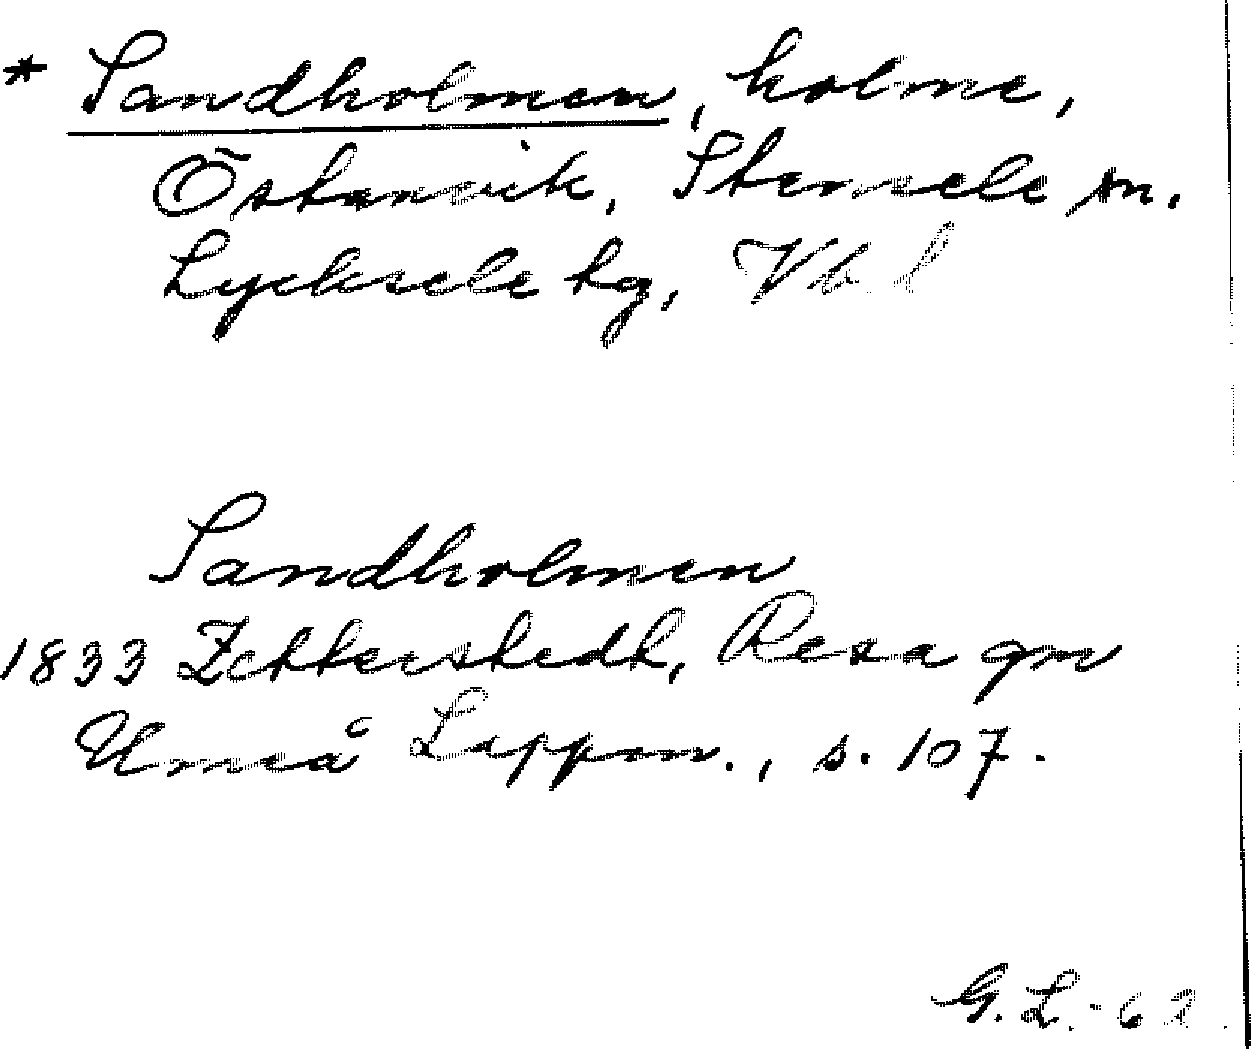 * Sandholmen, holme,
Östanvik, Stensele sn.
Lycksele lg, Vb. l
Sandholmen
1833 Zetterstedt, Resa gm
Umeå Lappm., s. 107.
G. L. - 62.